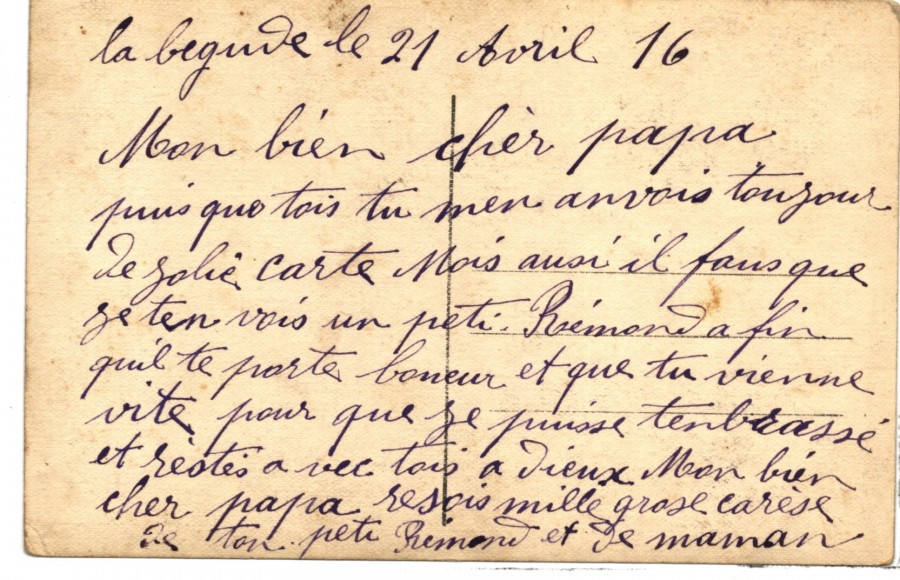 la begude le 21 Avril 16
Mon bién chèr papa
puis que tois tu men anvois touzour
de zolie carte Mois ausi il faus que
ze ten vois un peti. Rémond a fin
quil te porte boneur et que tu vienne
vite pour que ze puisse tenbrassé
et réstés a vec tois a dieux Mon bién
cher papa resois mille grose carèse
de ton peti Rémond et de maman